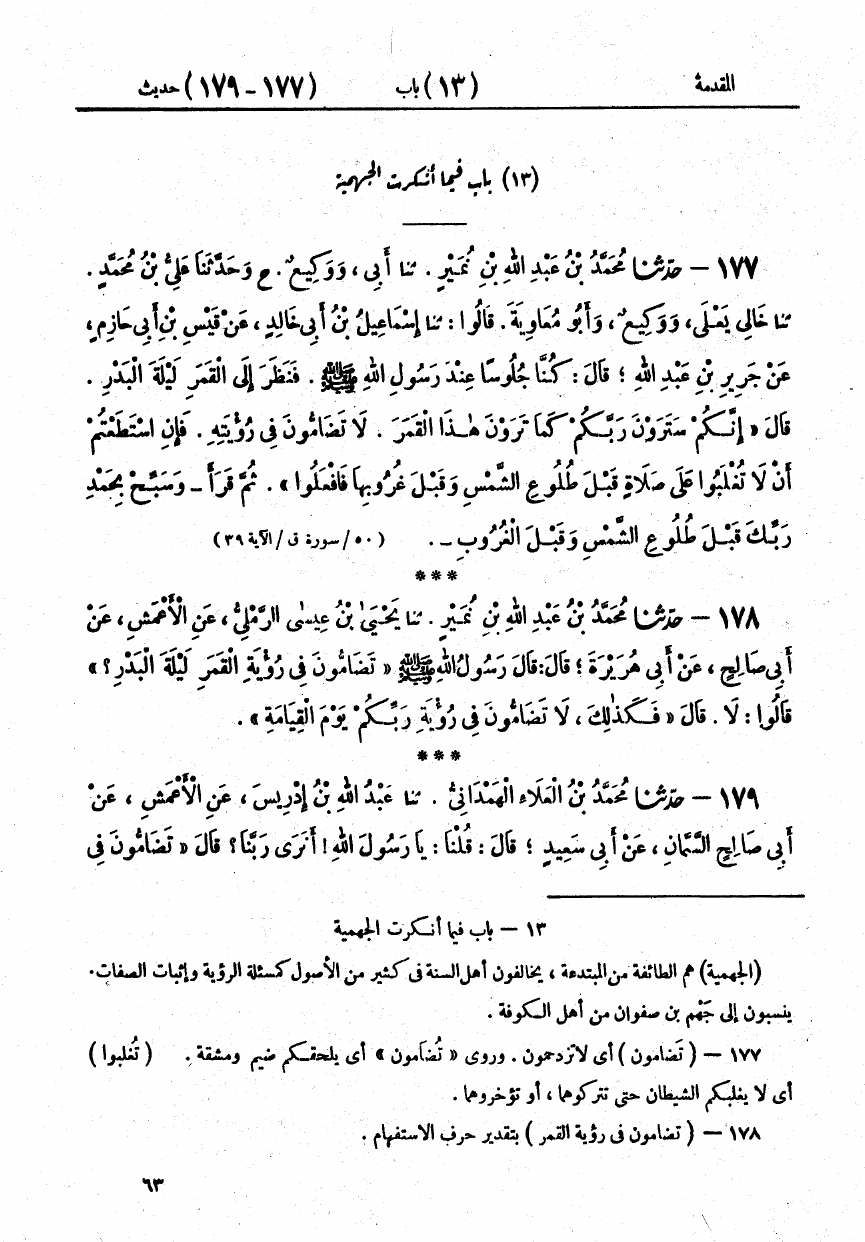 المقدمة (١٣) باب (١٧٧ - ١٧٩) حديث
(١٣) باب فيما أنكرت الجهمية
١٧٧ – حدّثنا مُحَمَّدُ بْنُ عَبْدِ اللهِ بْنِ نُمَيْرٍ. ثنا أَبِى، وَوَكِيعٌ. ح وَحَدَّثَنَا عَلِىُّ بْنُ مُحَمَّدٍ.
ثنا خَالِى يَعْلَى، وَوَكِيعٌ، وَأَبُو مُعَاوِيَةَ. قَالُوا: ثنا إِسْمَاعِيلُ بْنُ أَبِى خَالِدٍ، عَنْ قَيْسِ بْنِ أَبِى حَازِمٍ،
عَنْ جَرِيرِ بْنِ عَبْدِ اللهِ؛ قَالَ: كُنَّا جُلُوسًا عِنْدَ رَسُولِ اللهِ ﷺ. فَنَظَرَ إِلَى الْقَمَرِ لَيْلَةَ الْبَدْرِ.
قَالَ « إِنَّكُمْ سَتَرَوْنَ رَبَّكُمْ كَمَا تَرَوْنَ هٰذَا الْقَمَرَ. لَا تَضَامُّونَ فِى رُؤْيَتِهِ. فَإِنِ اسْتَطَعْتُمْ
أَنْ لَا تُغْلَبُوا عَلَى صَلَاةٍ قَبْلَ طُلُوعِ الشَّمْسِ وَقَبْلَ غُرُوبِهَا فَافْعَلُوا ». ثُمَّ قَرَأَ - وَسَبِّحْ بِحَمْدِ
رَبِّكَ قَبْلَ طُلُوعِ الشَّمْسِ وَقَبْلَ الْغُرُوبِ -. (٥٠/سورة ق/الآية ٣٩)
***
١٧٨ – حدّثنا مُحَمَّدُ بْنُ عَبْدِ اللهِ بْنِ نُمَيْرٍ. ثنا يَحْيَىٰ بْنُ عِيسٰى الرَّمْلِىُّ، عَنِ الْأَعْمَشِ، عَنْ
أَبِى صَالِحٍ، عَنْ أَبِى هُرَيْرَةَ؛ قَالَ: قَالَ رَسُولُ اللهِ ﷺ « تَضَامُّونَ فِى رُؤْيَةِ الْقَمَرِ لَيْلَةَ الْبَدْرِ؟ »
قَالُوا: لَا. قَالَ « فَكَذٰلِكَ، لَا تَضَامُّونَ فِى رُؤْيَةِ رَبِّكُمْ يَوْمَ الْقِيَامَةِ ».
***
١٧٩ – حدّثنا مُحَمَّدُ بْنُ الْعَلَاءِ الْهَمْدَانِىُّ. ثنا عَبْدُ اللهِ بْنُ إِدْرِيسَ، عَنِ الْأَعْمَشِ، عَنْ
أَبِى صَالِحٍ السَّمَّانِ، عَنْ أَبِى سَعِيدٍ؛ قَالَ: قُلْنَا: يَا رَسُولَ اللهِ! أَنَرَى رَبَّنَا؟ قَالَ « تَضَامُّونَ فِى
١٣ – باب فيما أنكرت الجهمية
(الجهمية) هم الطائفة من المبتدعة، يخالفون أهل السنة فى كثير من الأصول كمسئلة الرؤية وإثبات الصفات.
ينسبون إلى جَهْم بن صفوان من أهل الكوفة.
١٧٧ – (تَضامون) أى لا تزدحمون. وروى « تُضَامون » أى يلحقكم ضيم ومشقة. (تُغلبوا)
أى لا يغلبكم الشيطان حتى تتركوها، أو تؤخروها.
١٧٨ – (تضامون فى رؤية القمر) بتقدير حرف الاستفهام.
٦٣